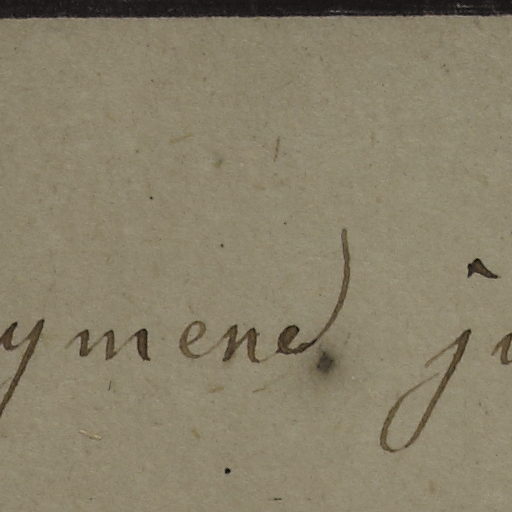 ymend j